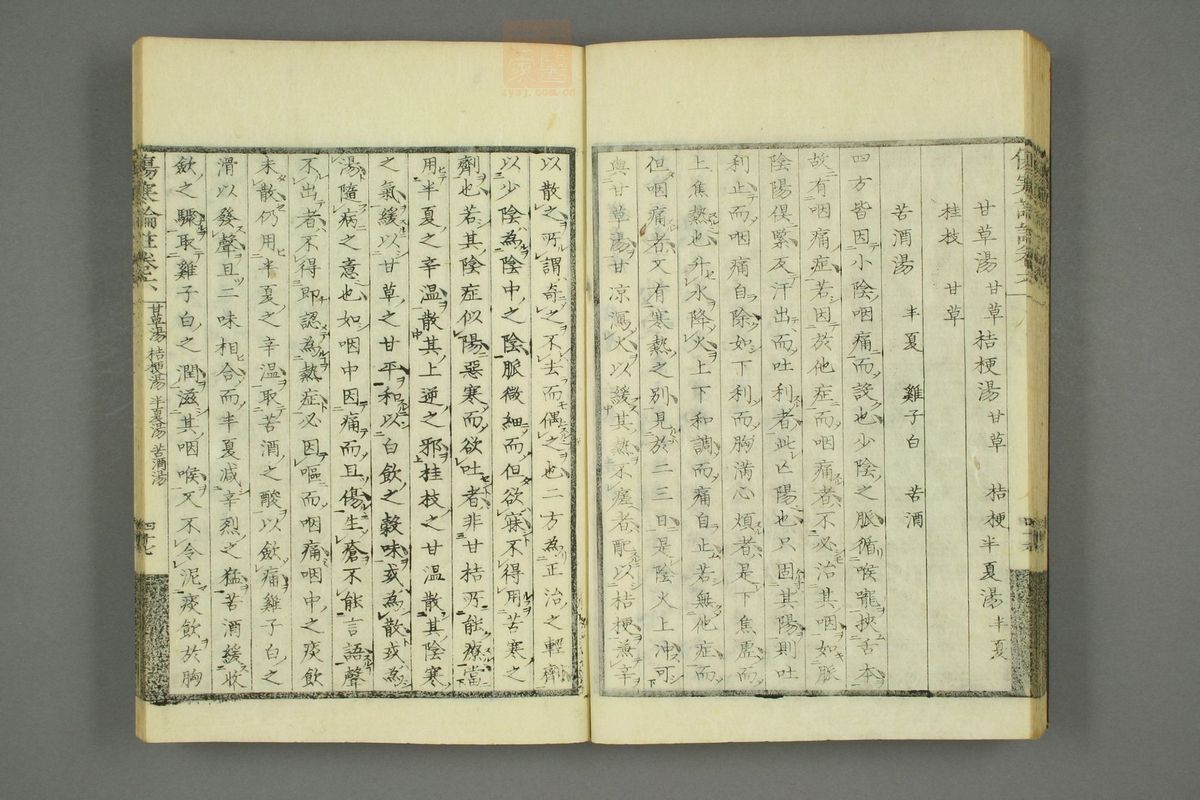 甘草湯 甘草 桔梗湯 甘草 桔梗 半夏湯 半夏
桂枝 甘草
苦酒湯 半夏 雞子白 苦酒
四方皆因少陰咽痛而設也少陰之脈循喉嚨挾舌本
故有咽痛症若因於他症而咽痛者不必治其咽如脈
陰陽俱緊反汗出而吐利者此亡陽也只固其陽則吐
利止而咽痛自除如下利而胸滿心煩者是下焦虛而
上焦熱也升水降火上下和調而痛自止若無他症而
但咽痛者又有寒熱之別見於二三日是陰火上冲可
與甘草湯甘凉瀉火以緩其熱不瘥者配以桔梗兼辛
以散之所謂奇之不去而偶之也二方為正治之輕劑
以少陰為陰中之陰脈微細而但欲寐不得用苦寒之
劑也若其陰症似陽惡寒而欲吐者非甘桔所能療當
用半夏之辛温散其上逆之邪桂枝之甘温散其陰寒
之氣緩以甘草之甘平和以白飲之榖味或為散或為
湯隨病之意也如咽中因痛而且傷生瘡不能言語聲
不出者不得即認為熱症必因嘔而咽痛咽中之痰飲
未散仍用半夏之辛温取苦酒之酸以斂痛雞子白之
滑以發聲且二味相合而半夏减辛烈之猛苦酒緩收
斂之驟取雞子白之潤滋其咽喉又不令泥痰飲於胸
傷寒論註卷之六 甘草湯 桔梗湯 半夏湯 苦酒湯 四十七